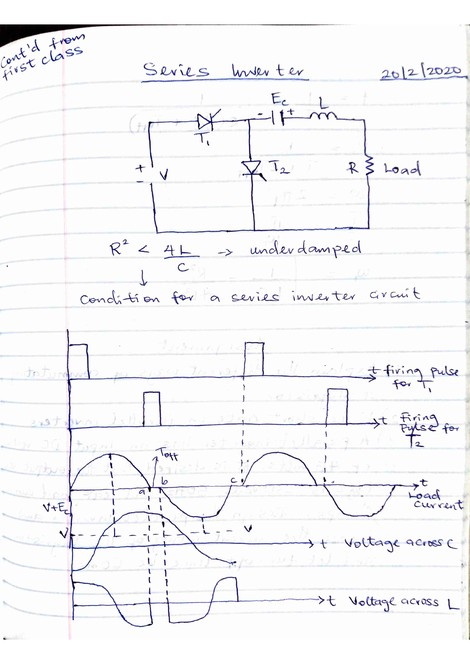 Cont'd from
first class
Series Inverter
20/2/2020
Ec
L
- +
T1
+
-
V
T2
R
Load
R² < 4L/C → underdamped
↓
Condition for a series inverter circuit
t firing pulse
for T1
t firing
pulse for
T2
Toff
a
b
c
t
Load
current
V+Ec
V
V
t Voltage across C
t Voltage across L